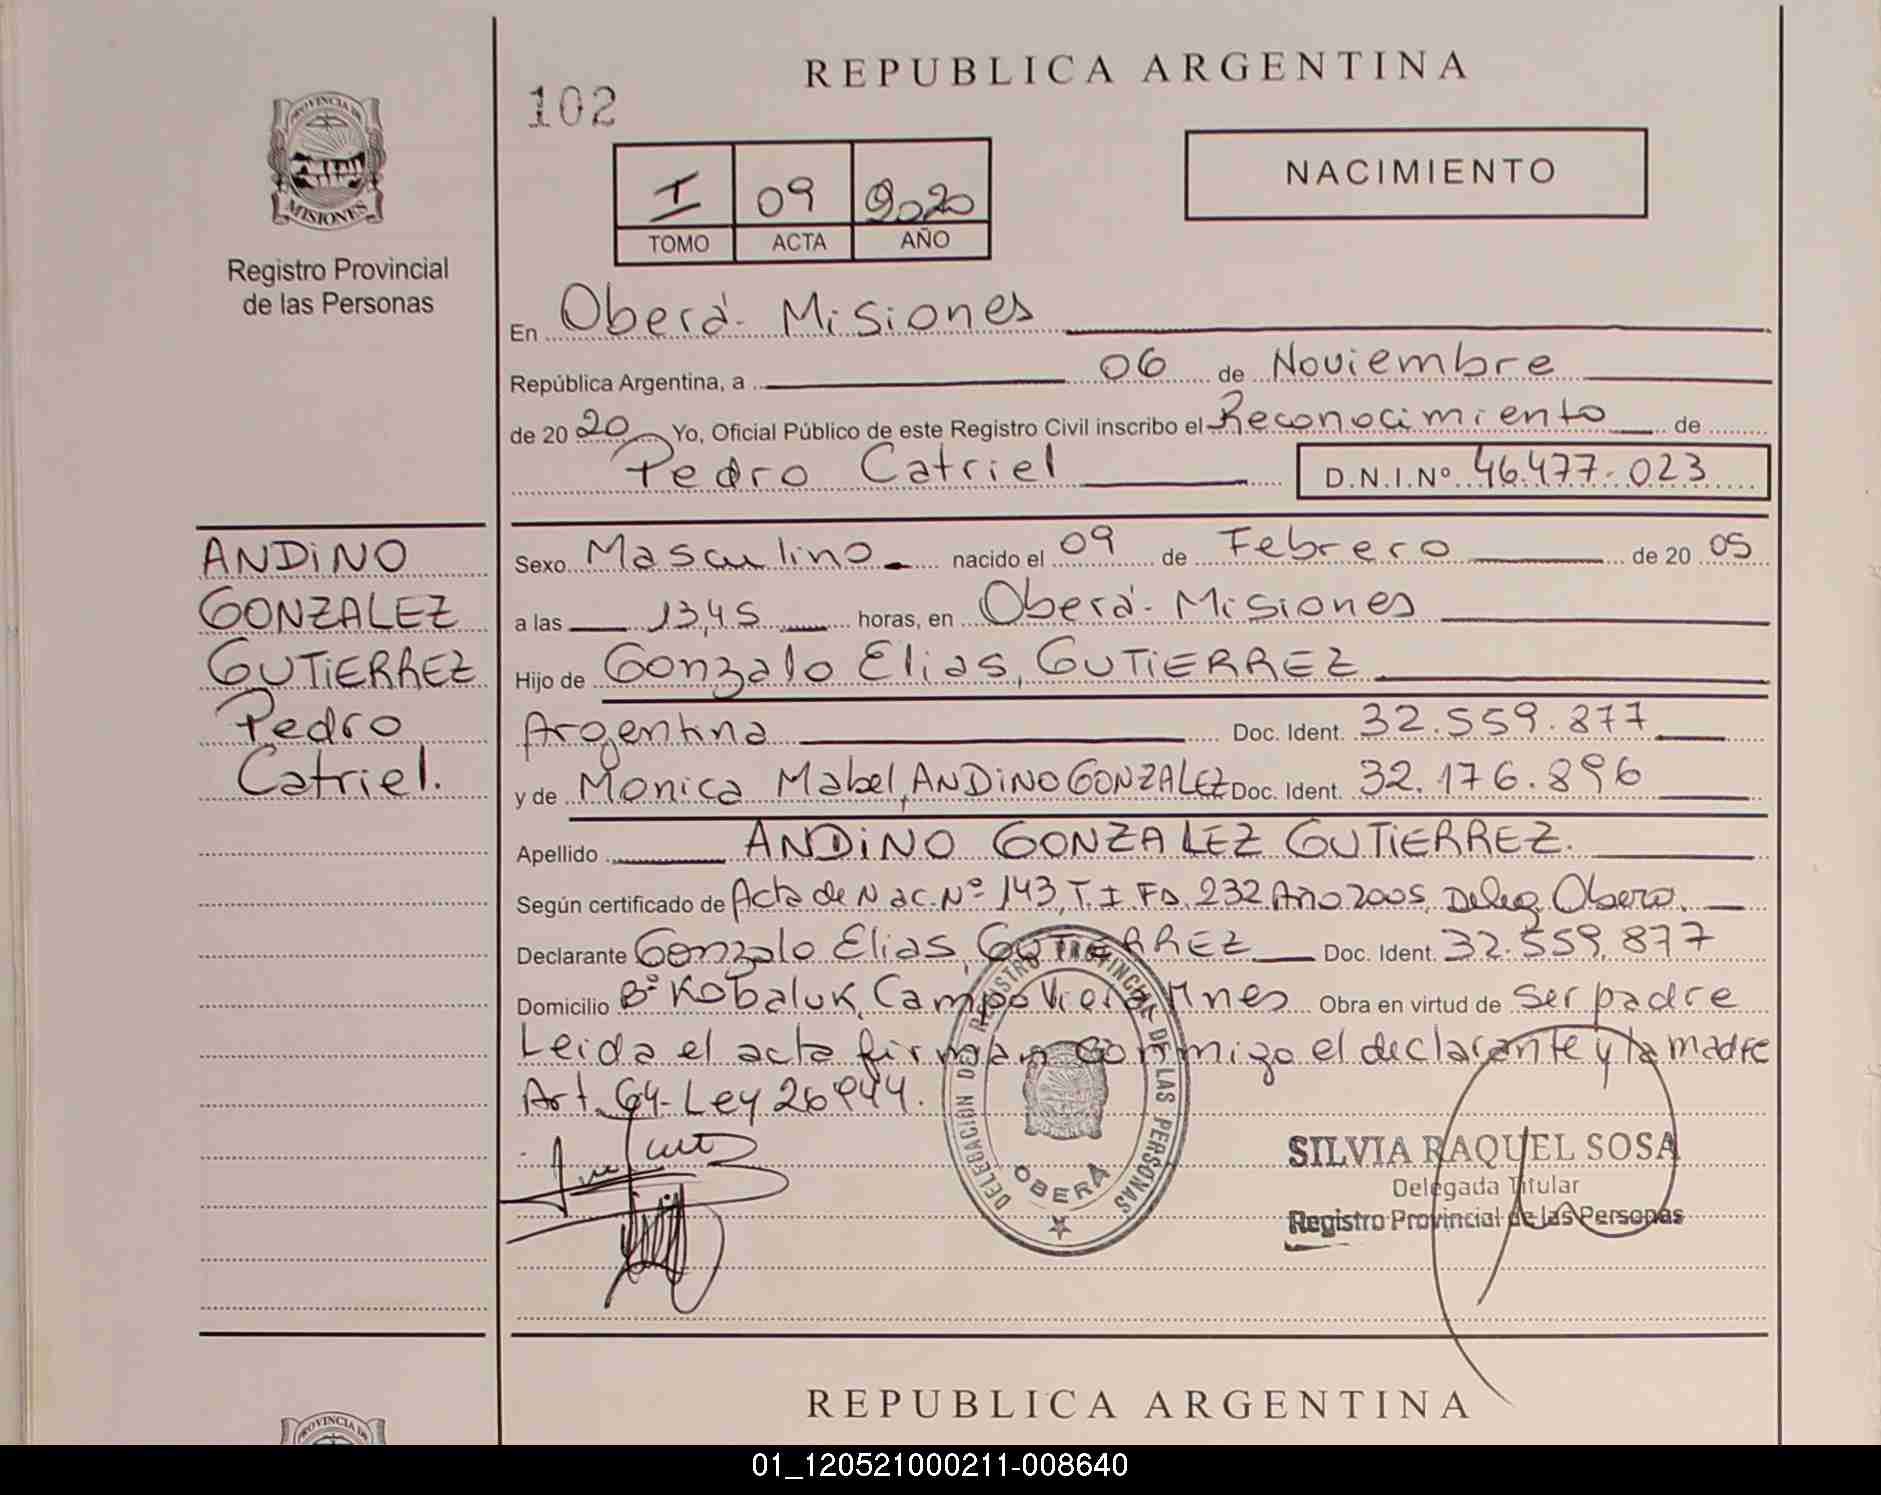 REPUBLICA ARGENTINA
102
PROVINCIA DE
MISIONES
Registro Provincial
de las Personas
I 09 2020
TOMO ACTA AÑO
NACIMIENTO
En Oberá - Misiones
República Argentina, a 06 de Noviembre
de 20 20 Yo, Oficial Público de este Registro Civil inscribo el Reconocimiento de
Pedro Catriel D.N.I.Nº 46.477.023
ANDiNO
GONZALEZ
GUTiERREZ
Pedro
Catriel.
Sexo Masculino nacido el 09 de Febrero de 20 05
a las 13,45 horas, en Oberá - Misiones
Hijo de Gonzalo Elias, GUTiERREZ
Argentina Doc. Ident. 32.559.877
y de Monica Mabel, ANDiNO GONZALEZ Doc. Ident. 32.176.896
Apellido ANDiNO GONZALEZ GUTiERREZ.
Según certificado de Acta de Nac. Nº 143, T. I Fº. 232 Año 2005, Deleg Obera.
Declarante Gonzalo Elias, GUTiERREZ Doc. Ident. 32.559.877
Domicilio Bº Kobaluk, Campo Viera Mnes Obra en virtud de ser padre
Leida el acta firman conmigo el declarante y la madre
Art. 64 - Ley 26944.
DELEGACION DEL REGISTRO PROVINCIAL DE LAS PERSONAS
OBERÁ
SILVIA RAQUEL SOSA
Delegada Titular
Registro Provincial de las Personas
REPUBLICA ARGENTINA
PROVINCIA DE
01_120521000211-008640